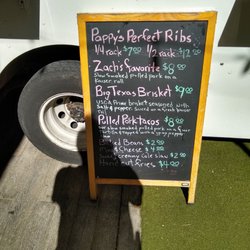 Pappy's Perfect Ribs
1/4 rack $7.00 1/2 rack $12.00
Zach's Favorite $8.00
Slow Smoked pulled pork on a
Kaiser roll
Big Texas Brisket $9.00
USDA Prime brisket seasoned with
Salt & pepper
Pulled Pork tacos $8.00
slow smoked pulled pork on a
Baked Beans $2.00
Mac & Cheese $4.00
creamy cole slaw $2.00
Fries $4.00